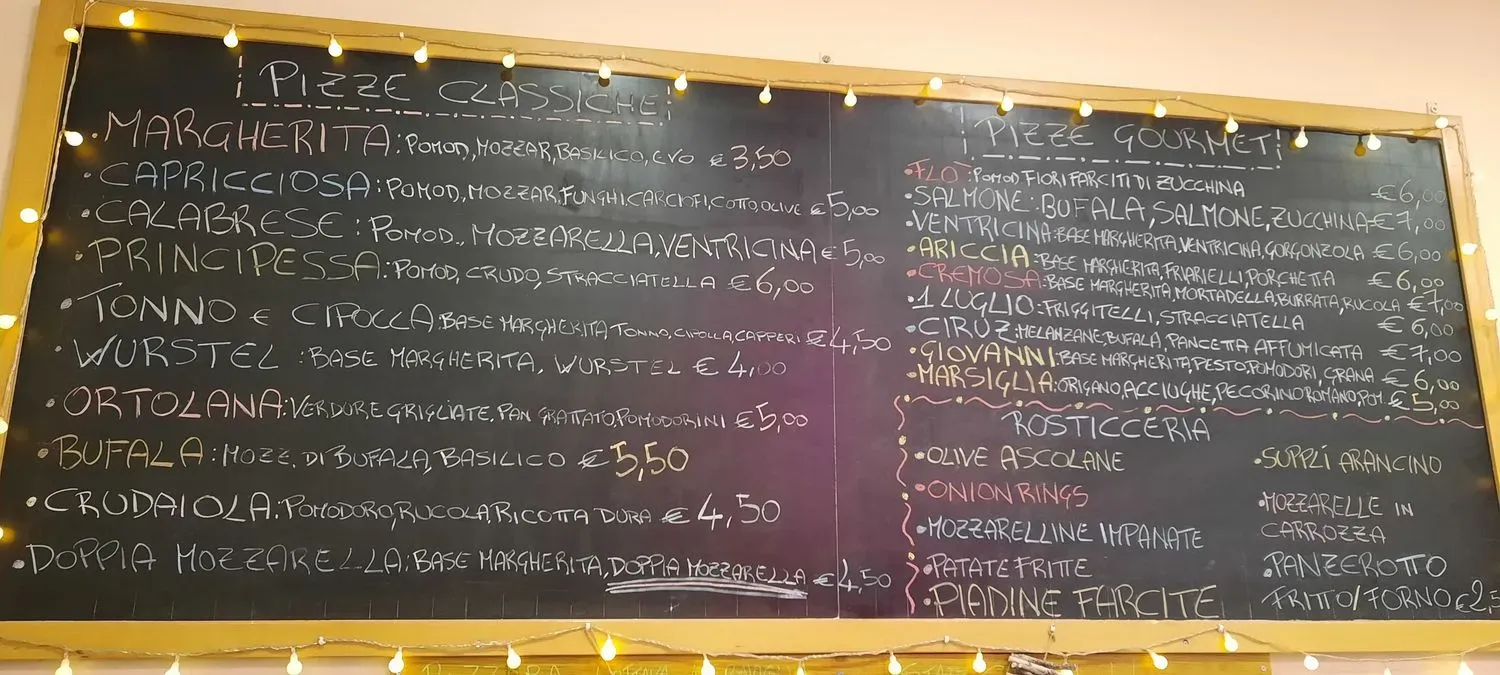 PIZZE CLASSICHE
• MARGHERITA: POMOD, MOZZAR, BASILICO, EVO € 3,50
• CAPRICCIOSA: POMOD, MOZZAR, FUNGHI CARCIOFI, COTTO, OLIVE € 5,00
• CALABRESE: POMOD., MOZZARELLA, VENTRICINA € 5,00
• PRINCIPESSA: POMOD, CRUDO, STRACCIATELLA € 6,00
• TONNO E CIPOLLA: BASE MARGHERITA, TONNO, CIPOLLA, CAPPERI € 4,50
• WURSTEL: BASE MARGHERITA, WURSTEL € 4,00
• ORTOLANA: VERDURE GRIGLIATE, PAN GRATTATO, POMODORINI € 5,00
• BUFALA: MOZZ. DI BUFALA, BASILICO € 5,50
• CRUDAIOLA: POMODORO, RUCOLA, RICOTTA DURA € 4,50
• DOPPIA MOZZARELLA: BASE MARGHERITA, DOPPIA MOZZARELLA € 4,50
PIZZE GOURMET
• FLO': POMOD, FIORI FARCITI DI ZUCCHINA € 6,00
• SALMONE: BUFALA, SALMONE, ZUCCHINA € 7,00
• VENTRICINA: BASE MARGHERITA, VENTRICINA, GORGONZOLA € 6,00
• ARICCIA: BASE MARGHERITA, FRIARIELLI, PORCHETTA € 6,00
• CREMOSA: BASE MARGHERITA, MORTADELLA, BURRATA, RUCOLA € 7,00
• 1 LUGLIO: FRIGGITELLI, STRACCIATELLA € 6,00
• CIRUZ: MELANZANE, BUFALA, PANCETTA AFFUMICATA € 7,00
• GIOVANNI: BASE MARGHERITA, PESTO, POMODORI, GRANA € 6,00
• MARSIGLIA: ORIGANO, ACCIUGHE, PECORINO ROMANO, POM. € 5,00
ROSTICCERIA
• OLIVE ASCOLANE
• ONION RINGS
• MOZZARELLINE IMPANATE
• PATATE FRITTE
• PIADINE FARCITE
• SUPPLÌ ARANCINO
• MOZZARELLE IN
CARROZZA
• PANZEROTTO
FRITTO/FORNO